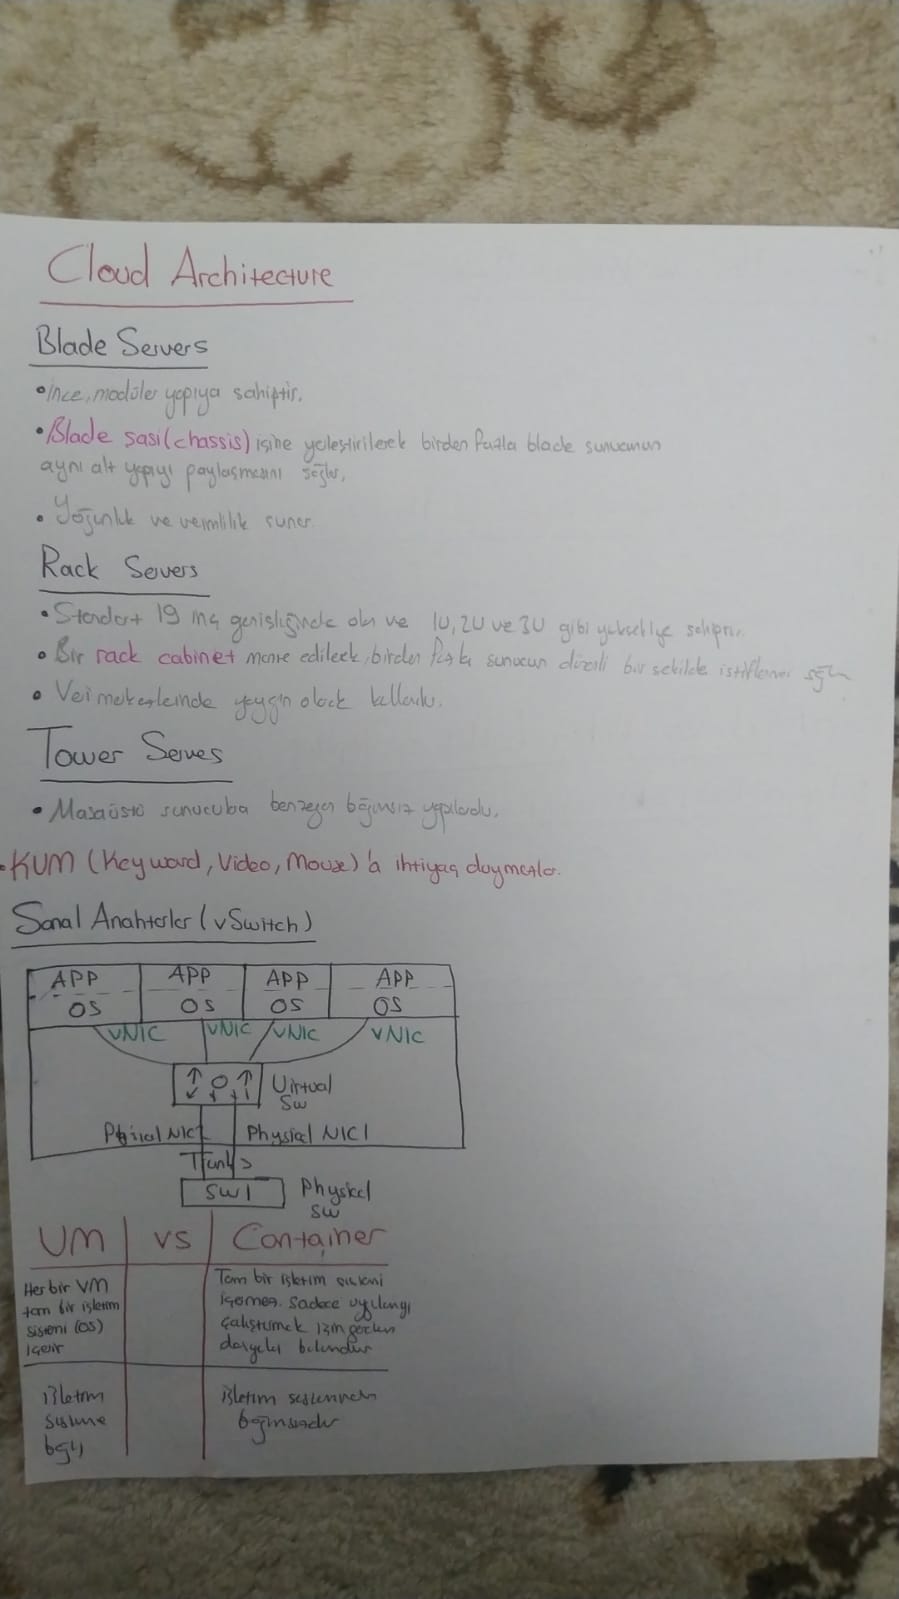 Cloud Architecture
Blade Servers
• İnce, modüler yapıya sahiptir.
• Blade şasi (chassis) içine yerleştirilerek birden fazla blade sunucunun
aynı alt yapıyı paylaşmasını sağlar.
• Yoğunluk ve verimlilik sunar.
Rack Servers
• Standart 19 inç genişliğinde olan ve 1U, 2U ve 3U gibi yüksekliğe sahiptir.
• Bir rack cabinet monte edilerek, birden fazla sunucun düzenli bir şekilde istiflenmesi sağlar
• Veri merkezlerinde yaygın olarak kullanılır.
Tower Serves
• Masaüstü sunucuba benzeyen bağımsız yapılardır.
• KVM (Keyword, Video, Mouse)'a ihtiyaç duymazlar.
Sanal Anahtarlar (vSwitch)
APP APP APP APP
OS OS OS OS
vNIC vNIC vNIC vNIC
Virtual
SW
Physical NIC1
Trunks
SW1 Physical
SW
VM VS Container
Her bir VM
tam bir işletim
sistemi (OS)
içerir
Tam bir işletim sistemi
içermez. Sadece uygulamayı
çalıştırmak için gereken
dosyaları bulundurur
İşletim
sistemine
bağlı
İşletim sisteminden
bağımsızdır